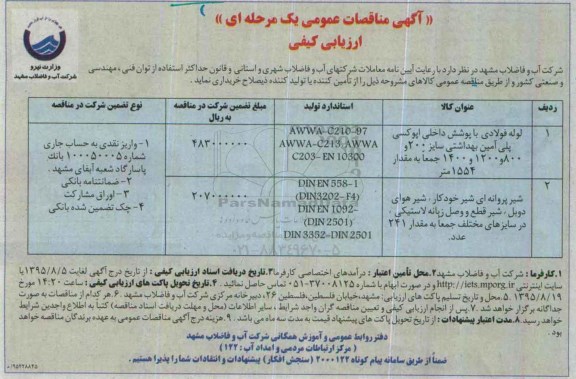 « آگهی مناقصات عمومی یک مرحله ای »
ارزیابی کیفی
وزارت نیرو
شرکت آب و فاضلاب مشهد
شرکت آب و فاضلاب مشهد در نظر دارد با رعایت آیین نامه معاملات شرکتهای آب و فاضلاب شهری و استانی و قانون حداکثر استفاده از توان فنی ، مهندسی
و صنعتی کشور و از طریق مناقصه عمومی کالاهای مشروحه ذیل را از تأمین کننده یا تولید کننده ذیصلاح خریداری نماید .
ردیف عنوان کالا استاندارد تولید مبلغ تضمین شرکت در مناقصه به ریال نوع تضمین شرکت در مناقصه
۱
لوله فولادی با پوشش داخلی اپوکسی
پلی آمین بهداشتی سایز ۲۰۰ و
۸۰۰ و ۱۲۰۰ و ۱۴۰۰ جمعا به مقدار
۱۵۵۴ متر
AWWA-C210-97
AWWA-C213-AWWA
C203-EN10300
۴۸۳۰۰۰۰۰۰
۲
شیر پروانه ای شیر خودکار ، شیر هوای
دوبل ، شیر قطع و وصل زبانه لاستیکی ،
در سایزهای مختلف جمعا به مقدار ۲۴۱
عدد.
DIN EN 558-1
(DIN3202-F4)
DIN EN 1092-
(DIN 2501)
DIN3352-DIN2501
۲۰۷۰۰۰۰۰۰
۱- واریز نقدی به حساب جاری
شماره ۱۰۰۰۵۰۰۰۵ بانک
پاسارگاد شعبه آبفای مشهد .
۲- ضمانتنامه بانکی
۳- اوراق مشارکت
۴- چک تضمین شده بانکی
۱.کارفرما : شرکت آب و فاضلاب مشهد ۲.محل تأمین اعتبار : درآمدهای اختصاصی کارفرما ۳.تاریخ دریافت اسناد ارزیابی کیفی : از تاریخ درج آگهی لغایت ۱۳۹۵/۸/۵ با
سایت اینترنتی http://iets.mporg.ir و در صورت ابهام با شماره ۳۷۰۰۸۱۲۵-۰۵۱ تماس حاصل نمائید . ۴.تاریخ تحویل پاکت های ارزیابی کیفی : ساعت ۱۴:۲۰ مورخ
۱۳۹۵/۸/۱۹ . ۵.محل و تاریخ تسلیم پاکت های ارزیابی: مشهد،خیابان فلسطین،فلسطین ۲۶، دبیرخانه مرکزی شرکت آب و فاضلاب مشهد . ۶.هر کدام از مناقصات به صورت
جداگانه برگزار خواهد شد . ۷.پس از انجام ارزیابی کیفی و تعیین مناقصه گران واجد شرایط ، سایر اطلاعات (محل و مهلت دریافت اسناد مناقصه) کتباً به اطلاع واجدین شرایط
خواهد رسید . ۸.مدت اعتبار پیشنهادات : از تاریخ تحویل پاکت های پیشنهاد قیمت به مدت سه ماه می باشد . ۹.هزینه درج آگهی مناقصات عمومی به عهده برندگان مناقصه خواهد
بود
دفتر روابط عمومی و آموزش همگانی شرکت آب و فاضلاب مشهد
( مرکز ارتباطات مردمی و امداد آب : ۱۲۲ )
ضمناً از طریق سامانه پیام کوتاه ۲۰۰۰۱۲۲ (سنجش افکار) پیشنهادات و انتقادات شما را پذیرا هستیم .